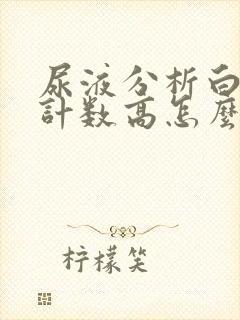 尿液分析白
計数高怎麼
柠檬笑